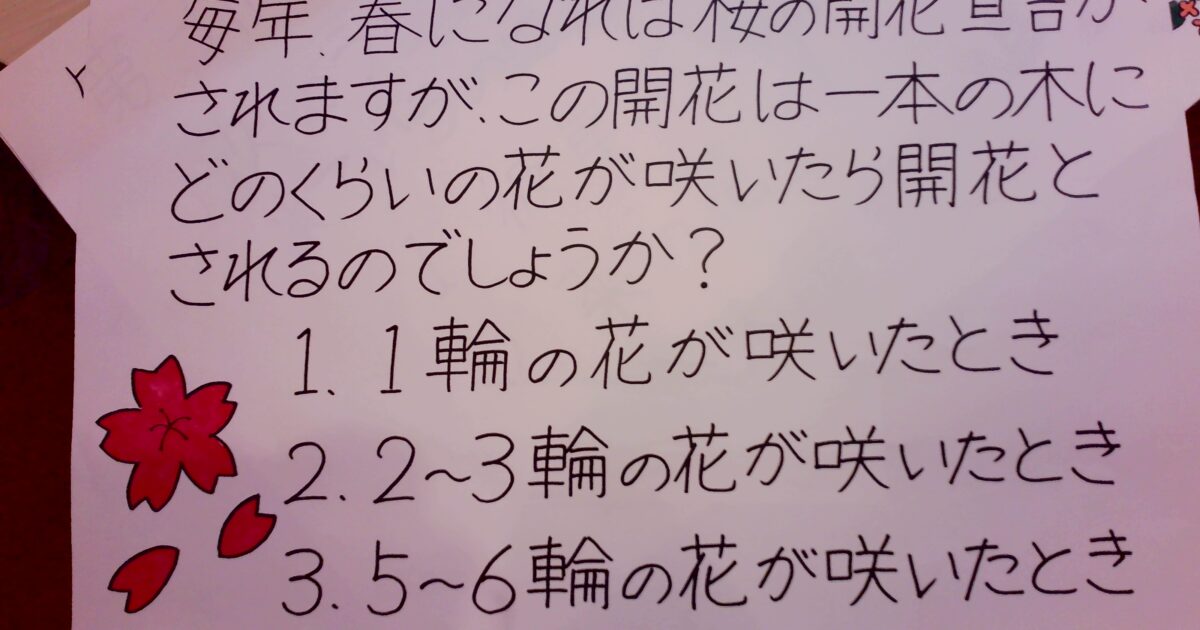 毎年、春になれば桜の開花宣言が
されますが、この開花は一本の木に
どのくらいの花が咲いたら開花と
されるのでしょうか？
1. 1輪の花が咲いたとき
2. 2〜3輪の花が咲いたとき
3. 5〜6輪の花が咲いたとき